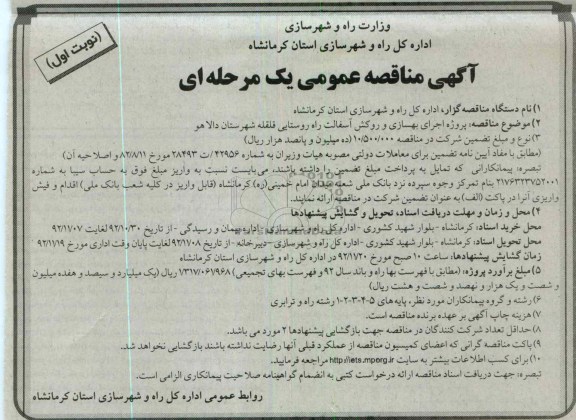 وزارت راه و شهرسازی
اداره کل راه و شهرسازی استان کرمانشاه
(نوبت اول)
آگهی مناقصه عمومی یک مرحله ای
۱) نام دستگاه مناقصه گزار، اداره کل راه و شهرسازی استان کرمانشاه
۲) موضوع مناقصه: پروژه اجرای بهسازی و روکش آسفالت راه روستایی قلقله شهرستان دالاهو
۳) نوع و مبلغ تضمین شرکت در مناقصه ۱۰/۵۰۰/۰۰۰ (ده میلیون و پانصد هزار ریال)
(مطابق با مفاد آیین نامه تضمین برای معاملات دولتی مصوبه هیات وزیران به شماره ۴۲۹۵۶/ت ۲۸۴۹۳ مورخ ۸۲/۸/۱۱ و اصلاحیه آن)
تبصره: پیمانکارانی که تمایل به پرداخت مبلغ تضمین را داشته باشند، می بایست نسبت به واریز مبلغ فوق به حساب سیبا به شماره
۲۱۷۶۴۳۳۷۵۲۰۰۱ بنام تمرکز وجوه سپرده نزد بانک ملی شعبه میدان امام خمینی(ره) کرمانشاه (قابل واریز در کلیه شعب بانک ملی) اقدام و فیش
واریزی آنرا در پاکت (الف) به عنوان تضمین شرکت در مناقصه ارائه نمایند.
۴) محل و زمان و مهلت دریافت اسناد، تحویل و گشایش پیشنهادها
محل خرید اسناد: کرمانشاه - بلوار شهید کشوری - اداره کل راه و شهرسازی - اداره پیمان و رسیدگی - از تاریخ ۹۲/۱۰/۳۰ لغایت ۹۲/۱۱/۰۷
محل تحویل اسناد: کرمانشاه - بلوار شهید کشوری - اداره کل راه و شهرسازی - دبیرخانه - از تاریخ ۹۲/۱۱/۰۸ لغایت پایان وقت اداری مورخ ۹۲/۱۱/۱۹
زمان گشایش پیشنهادها، ساعت ۱۰ صبح مورخ ۹۲/۱۱/۲۰ در اداره کل راه و شهرسازی استان کرمانشاه
۵) مبلغ برآورد پروژه: (مطابق با فهرست بها راه و باند سال ۹۲ و فهرست بهای تجمیعی) ۱/۳۱۷/۰۶۱/۹۶۸ ریال (یک میلیارد و سیصد و هفده میلیون
و شصت و یک هزار و نهصد و شصت و هشت ریال)
۶) رشته و گروه پیمانکاران مورد نظر، پایه های ۵-۴-۳-۲-۱ رشته راه و ترابری
۷) هزینه چاپ آگهی بر عهده برنده مناقصه است.
۸) حداقل تعداد شرکت کنندگان در مناقصه جهت بازگشایی پیشنهادها ۲ مورد می باشد.
۹) پاکت مناقصه گرانی که اعضای کمیسیون مناقصه از عملکرد قبلی آنها رضایت نداشته باشند بازگشایی نخواهد شد.
۱۰) برای کسب اطلاعات بیشتر به سایت http://iets.mporg.ir مراجعه فرمایید.
تبصره: جهت دریافت اسناد مناقصه ارائه درخواست کتبی به انضمام گواهینامه صلاحیت پیمانکاری الزامی است.
روابط عمومی اداره کل راه و شهرسازی استان کرمانشاه